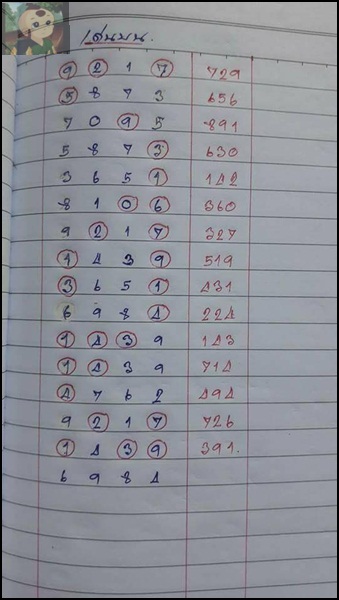 เด่นบน.
9 2 1 7 729
5 8 7 3 656
7 0 9 5 891
5 8 7 3 630
3 6 5 1 142
8 1 0 6 360
9 2 1 7 327
1 4 3 9 519
3 6 5 1 431
6 9 8 4 224
1 4 3 9 143
1 4 3 9 714
4 7 6 2 494
9 2 1 7 726
1 4 3 9 391.
6 9 8 4